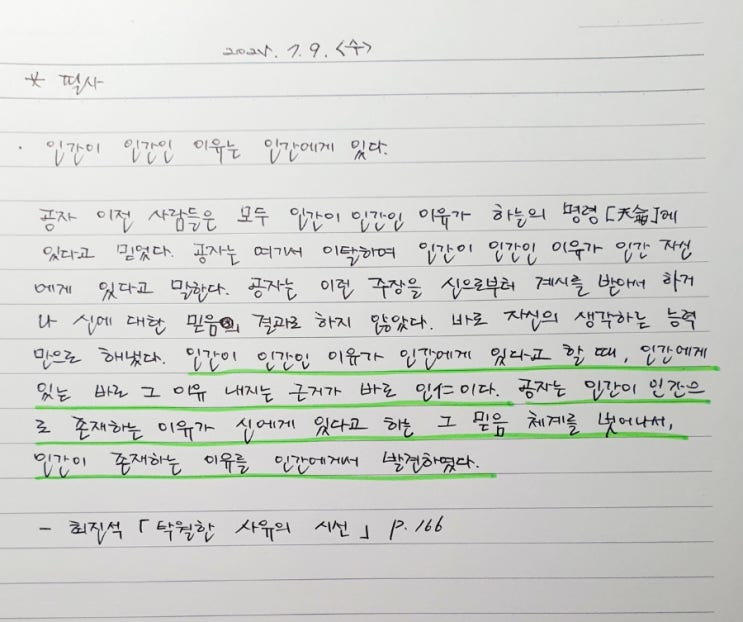 2025. 7. 9. <수>
* 필사
· 인간이 인간인 이유는 인간에게 있다.
공자 이전 사람들은 모두 인간이 인간인 이유가 하늘의 명령 [天命]에
있다고 믿었다. 공자는 여기서 이탈하며 인간이 인간인 이유가 인간 자신
에게 있다고 말한다. 공자는 이런 주장을 신으로부터 계시를 받아서 하거
나 신에 대한 믿음의 결과로 하지 않았다. 바로 자신의 생각하는 능력
만으로 해냈다. 인간이 인간인 이유가 인간에게 있다고 할 때, 인간에게
있는 바로 그 이유 내지는 근거가 바로 인仁이다. 공자는 인간이 인간으
로 존재하는 이유가 신에게 있다고 하는 그 믿음 체계를 벗어나서,
인간이 존재하는 이유를 인간에게서 발견하였다.
- 최진석 「탁월한 사유의 시선」 p. 166